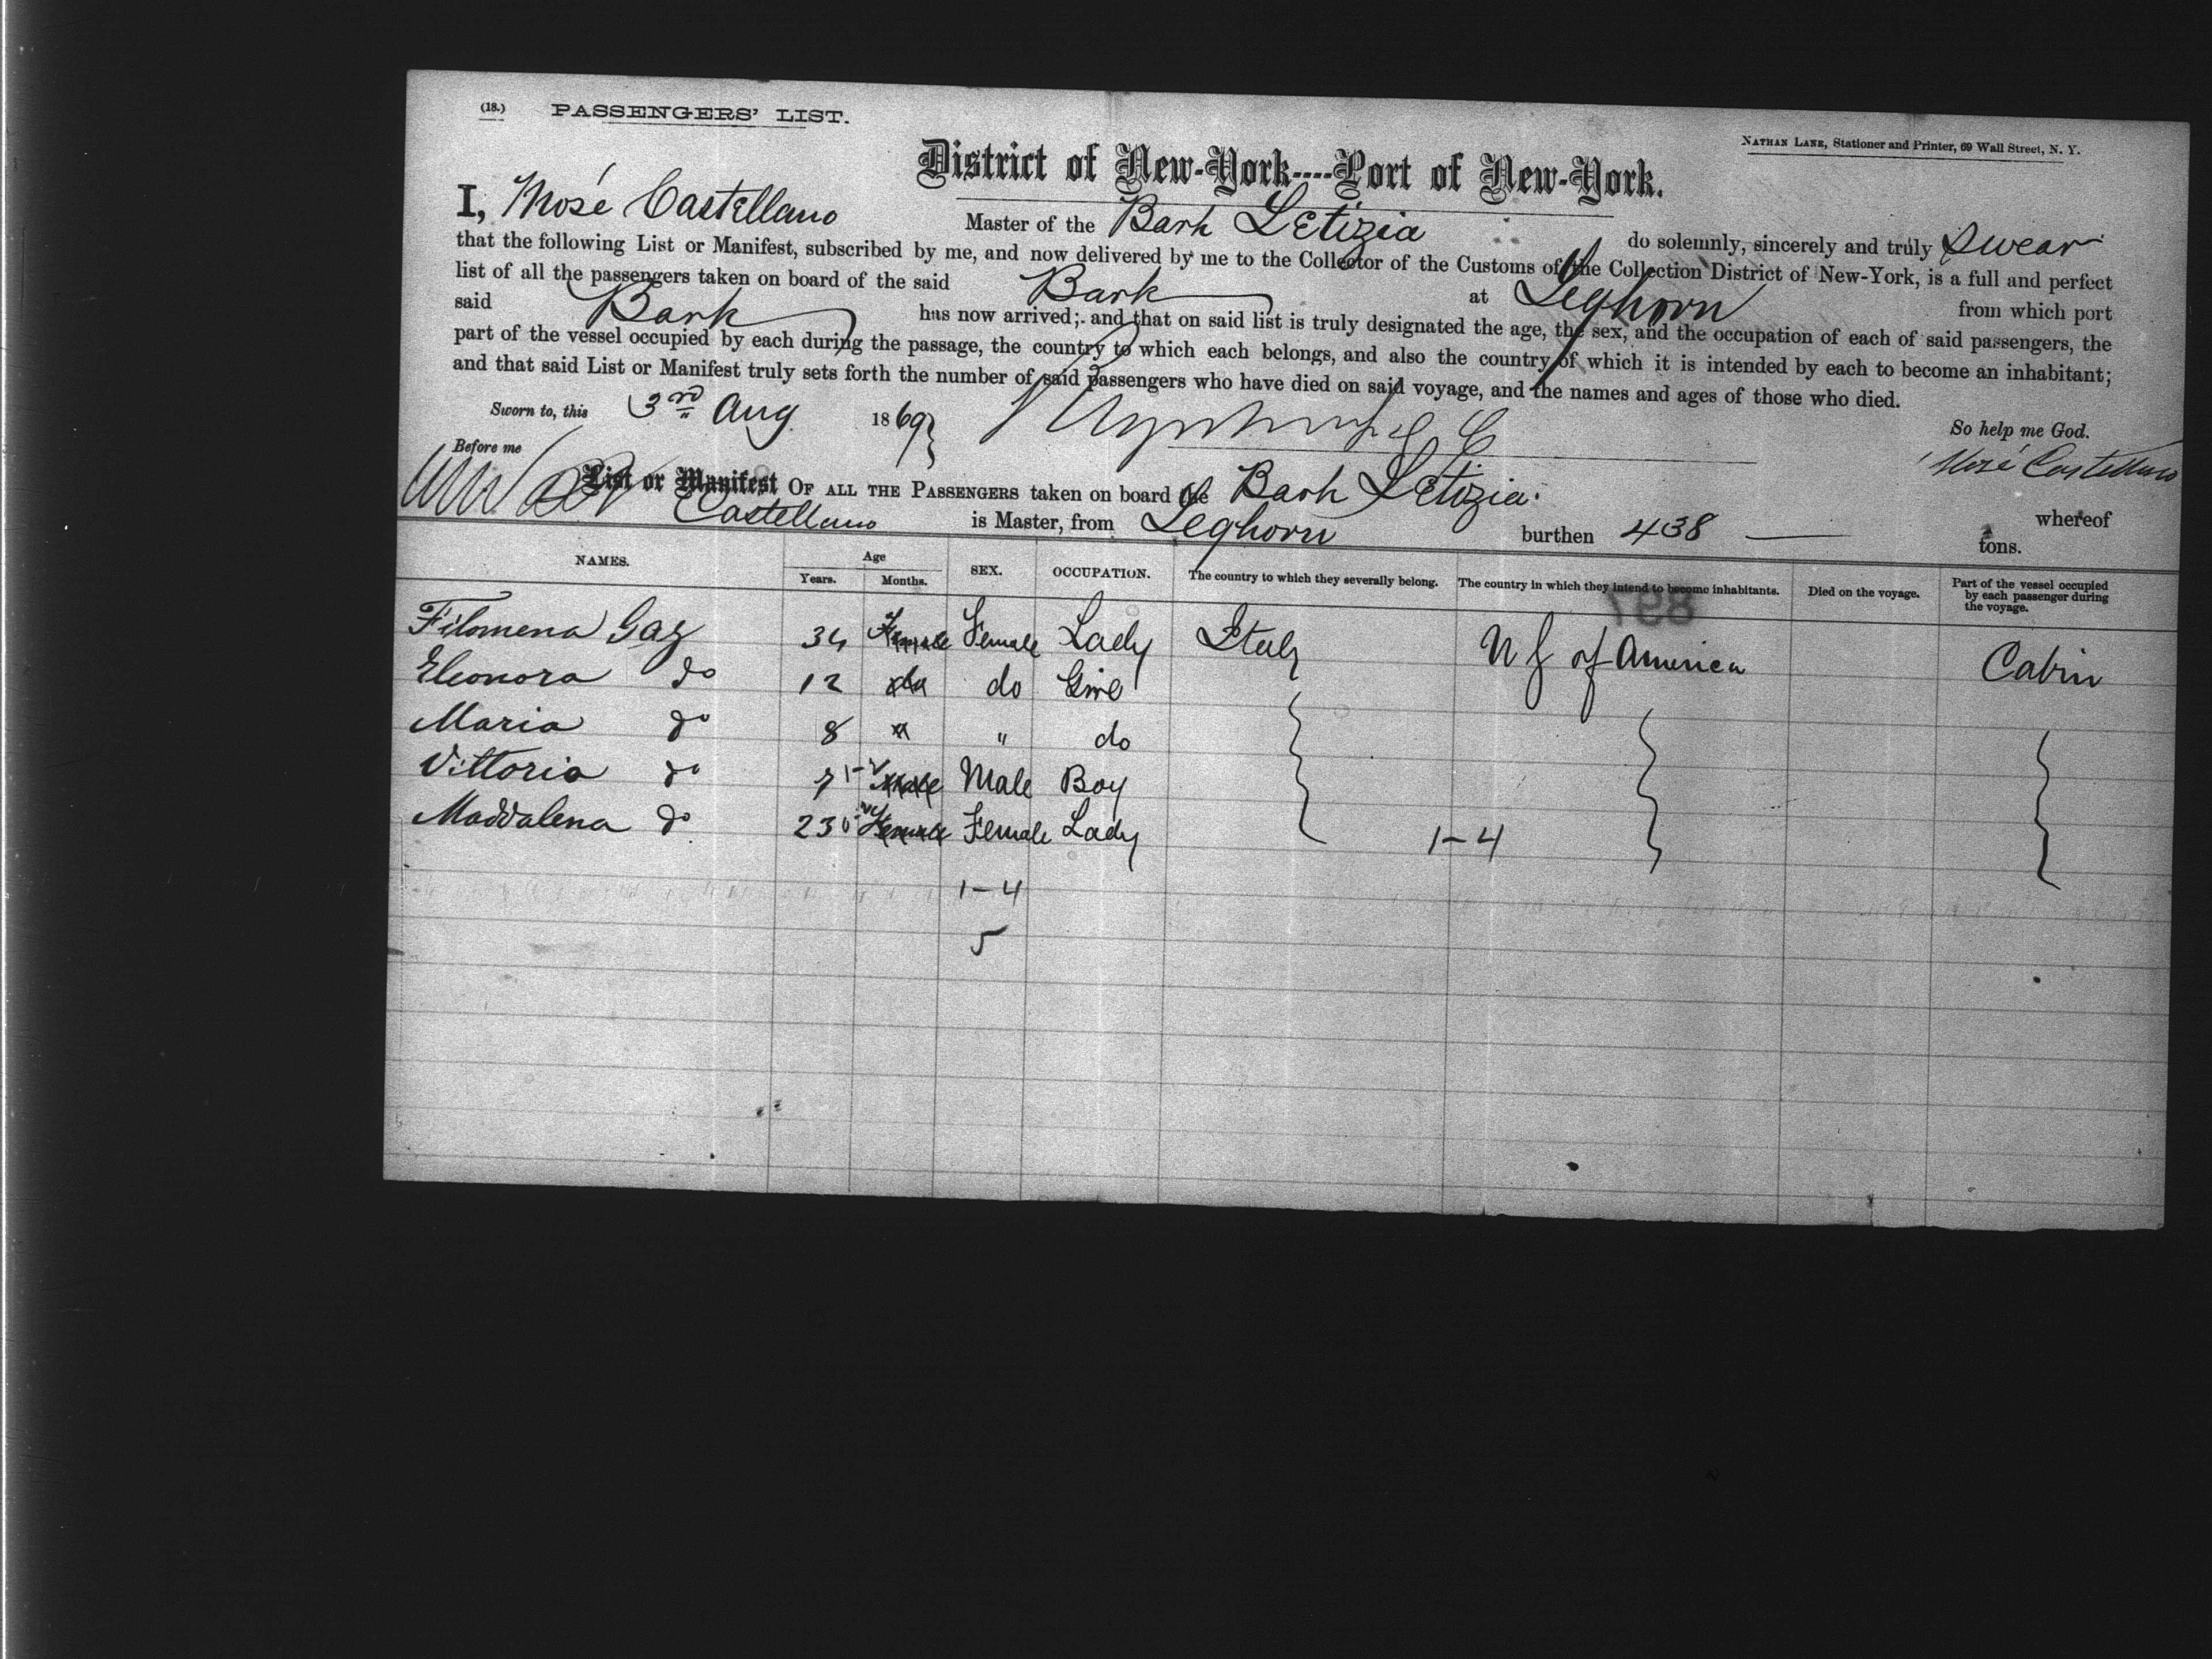 (18.) PASSENGERS' LIST.
NATHAN LANE, Stationer and Printer, 69 Wall Street, N. Y.
District of New-York----Port of New-York.
I, Mosé Castellano Master of the Bark Letizia do solemnly, sincerely and truly swear
that the following List or Manifest, subscribed by me, and now delivered by me to the Collector of the Customs of the Collection District of New-York, is a full and perfect
list of all the passengers taken on board of the said Bark at Leghorn from which port
said Bark has now arrived; and that on said list is truly designated the age, the sex, and the occupation of each of said passengers, the
part of the vessel occupied by each during the passage, the country to which each belongs, and also the country of which it is intended by each to become an inhabitant;
and that said List or Manifest truly sets forth the number of said passengers who have died on said voyage, and the names and ages of those who died.
Sworn to, this 3rd Aug 1869 So help me God.
Before me Mosé Castellano
List or Manifest OF ALL THE PASSENGERS taken on board the Bark Letizia whereof
Castellano is Master, from Leghorn burthen 438 tons.
NAMES. Age Years. Months. SEX. OCCUPATION. The country to which they severally belong. The country in which they intend to become inhabitants. Died on the voyage. Part of the vessel occupied by each passenger during the voyage.
Filomena Gaz 34 Female Female Lady Italy of America Cabin
Eleonora do 12 do do
Maria do 8 " do
Vittorio do 7 Male Male Boy
Maddalena do 23 Female Female Lady 1-4
1-4
5